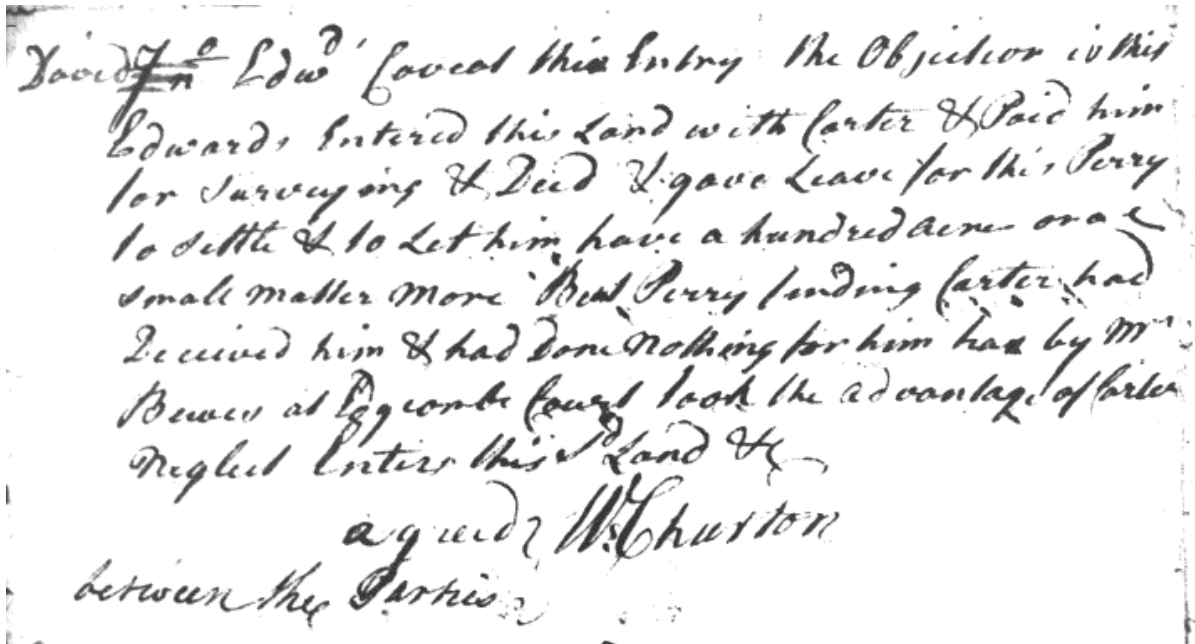 David Jno Edwd Caveat this Entry the Objection is this
Edwards Entered this Land with Carter & Paid him
for Surveying & Deed & gave Leave for this Perry
to Settle & to Let him have a hundred acres or a
small matter more But Perry finding Carter had
Deceived him & had Done Nothing for him has by Mr
Bewes at Edgcombe Court took the advantage of Carters
Neglect Enters this sd Land &c
agreed Wm Churton
between the Parties